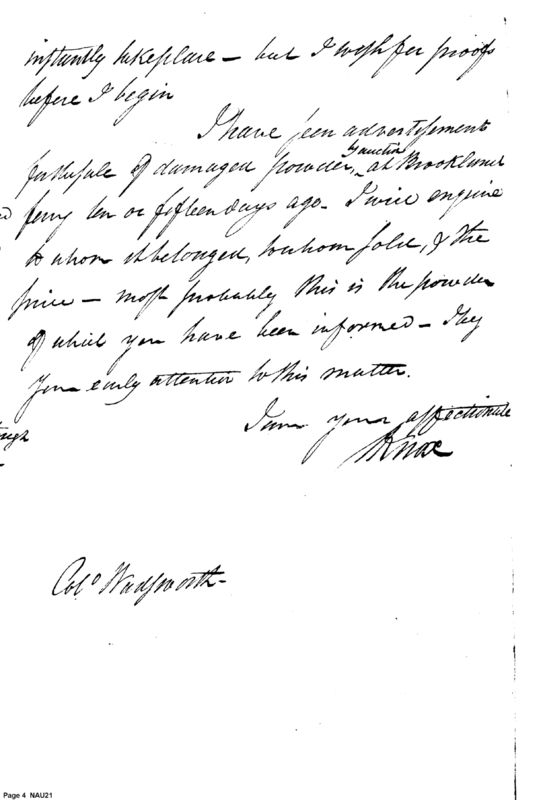 instantly take place – but I wish for proofs
before I begin
I have seen advertisements
for the sale of damaged powder, ^at auction at Brooklands
ferry ten or fifteen days ago – I will enquire
to whom it belonged, to whom sold, & the
price – most probably this is the powder
of which you have been informed – I beg
your early attention to this matter.
I am your affectionate
HKnox
Colo Wadsworth –
Page 4 NAU21